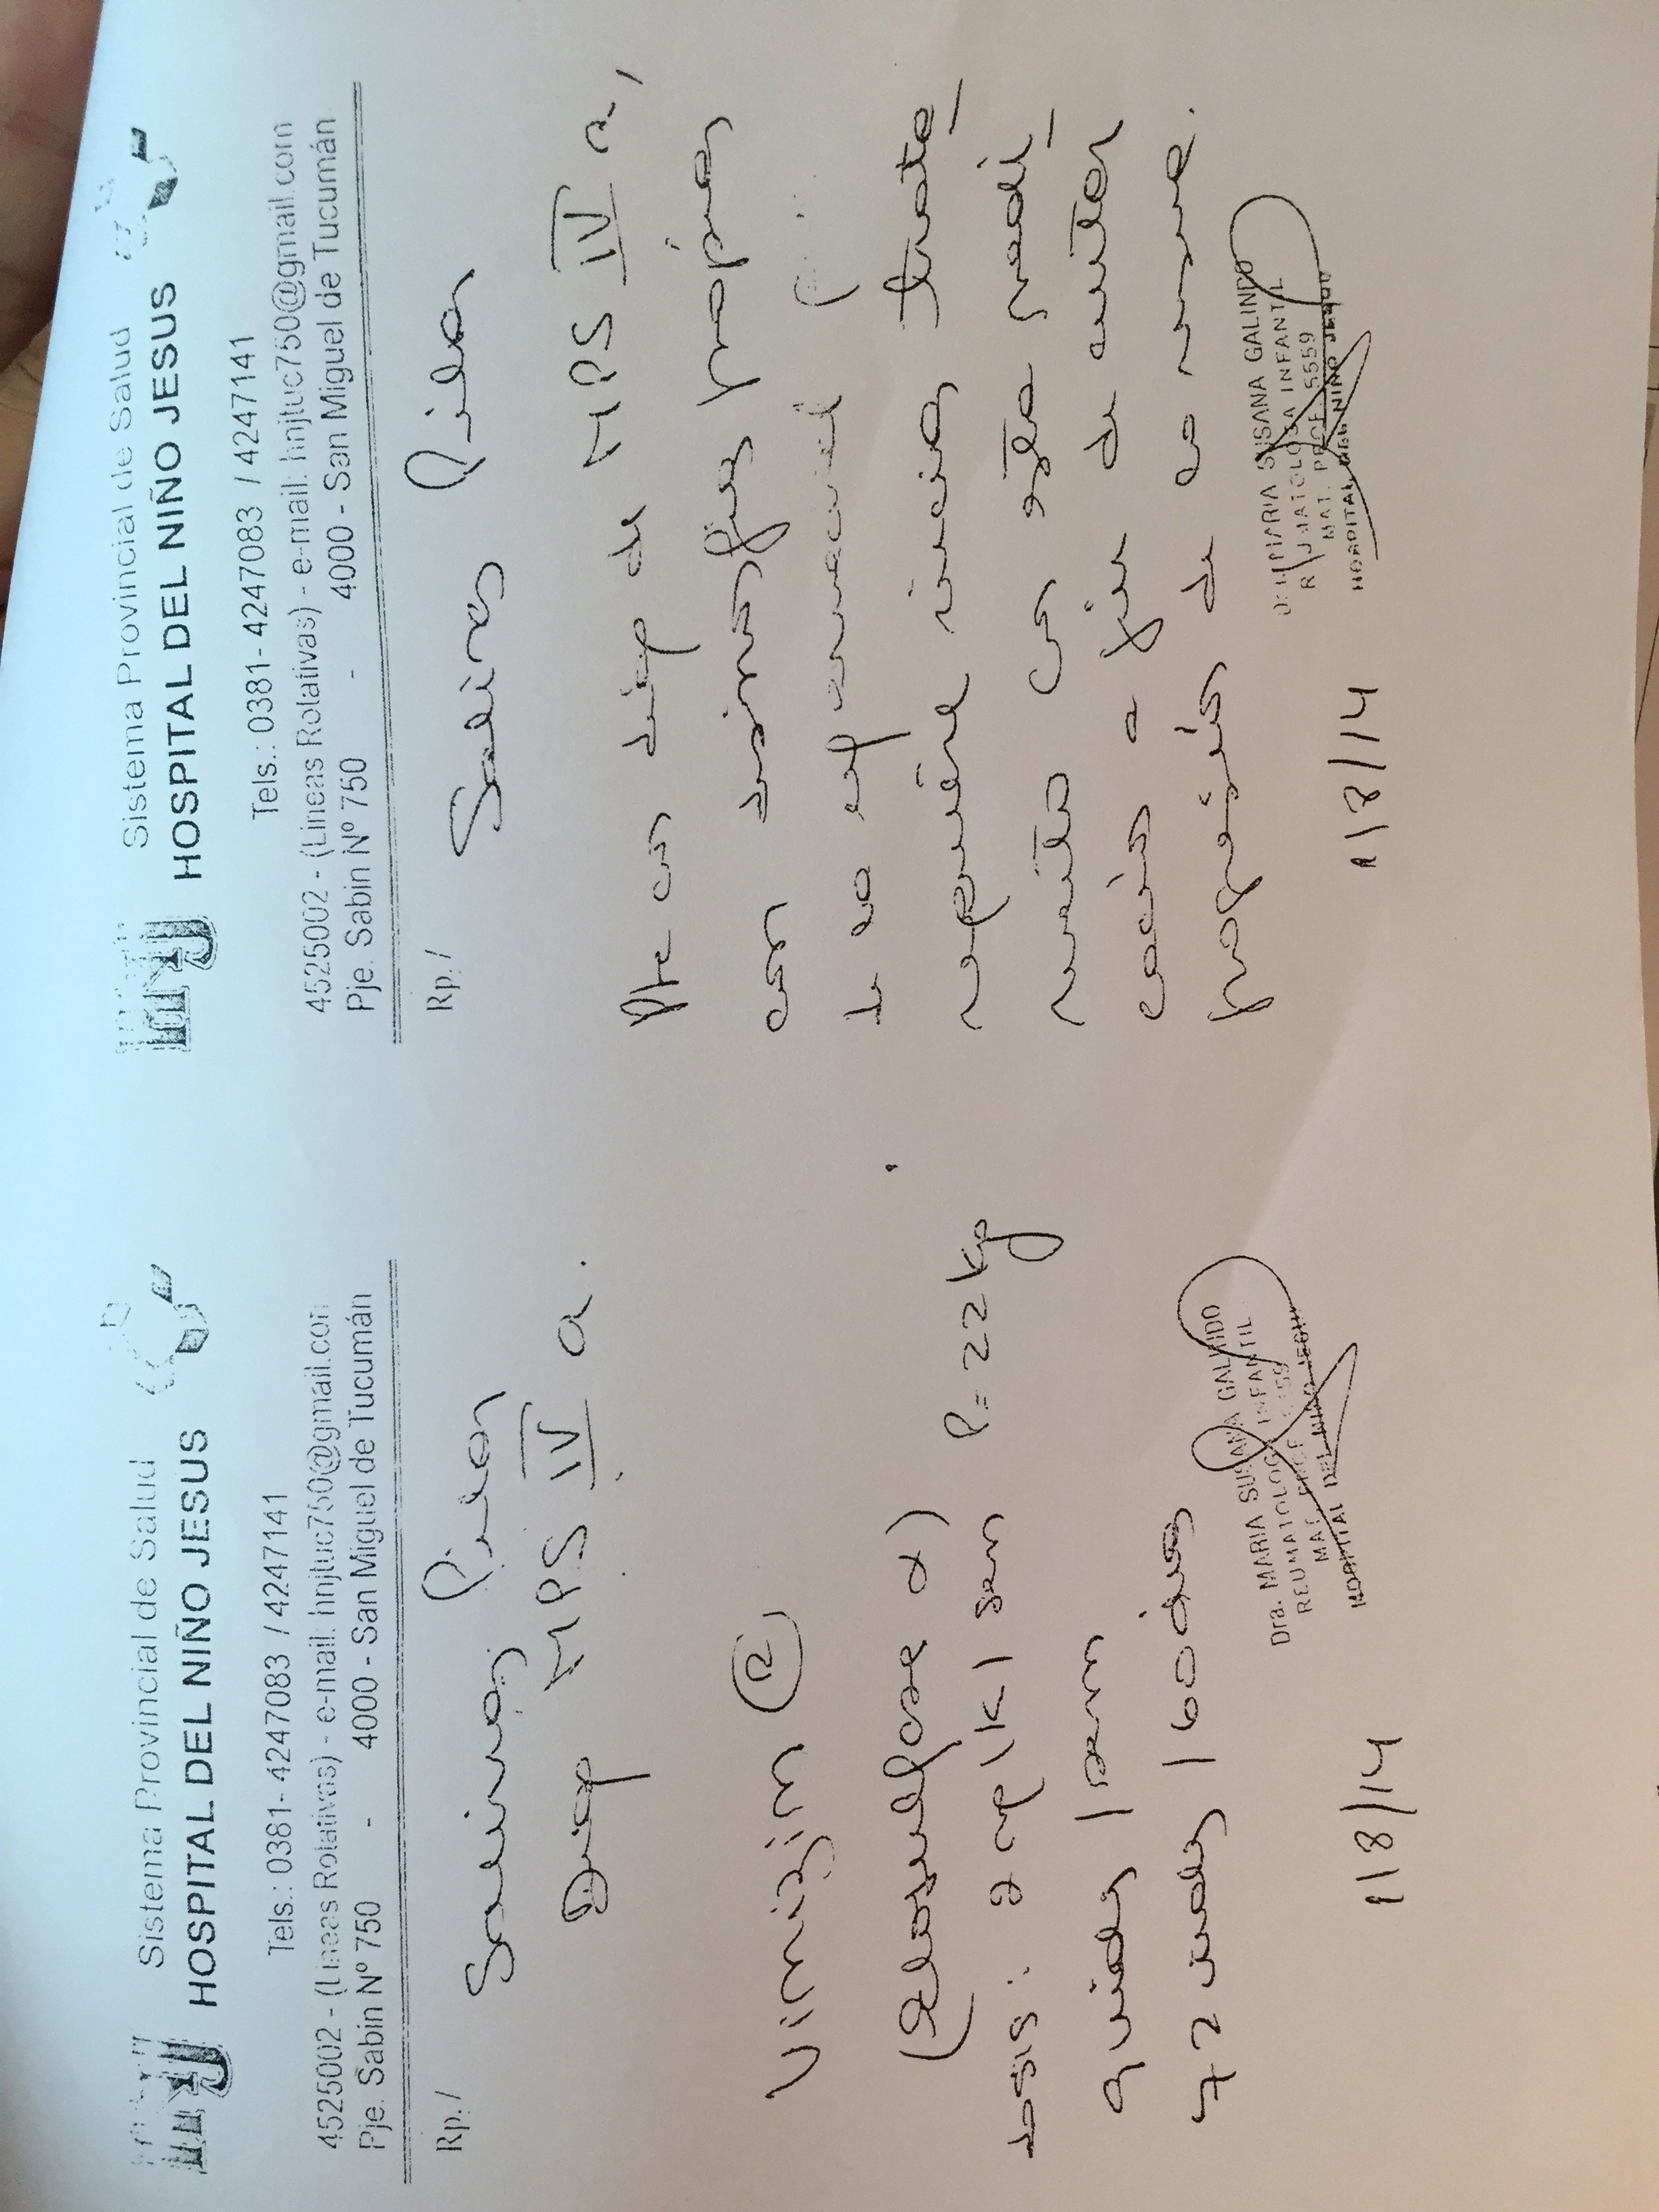 Sistema Provincial de Salud
HOSPITAL DEL NIÑO JESUS
Tels.: 0381- 4247083 / 4247141
4525002 - (Lineas Rotativas) - e-mail: hnjtuc750@gmail.com
Pje. Sabin Nº 750 - 4000 - San Miguel de Tucumán
Rp./
Salinas, Pilar
Diag MPS IV a.
Vimizim ®
(Elosulfase α)
dosis: 2 mg/K/sem P= 22 kg
9 viales/sem
72 viales/60 días
1/8/14
Dra. MARIA SUSANA GALINDO
REUMATOLOGA INFANTIL
MAT. PROF. 5559
HOSPITAL DEL NIÑO JESUS
Sistema Provincial de Salud
HOSPITAL DEL NIÑO JESUS
Tels.: 0381- 4247083 / 4247141
4525002 - (Lineas Rotativas) - e-mail: hnjtuc750@gmail.com
Pje. Sabin Nº 750 - 4000 - San Miguel de Tucumán
Rp./
Salinas Pilar
Pte con diag de MPS IV a,
con propias
de la
requiere iniciar trata_
miento con esta medi_
cación a fin de evitar
progresión de la misma.
1/8/14
Dra. MARIA SUSANA GALINDO
REUMATOLOGA INFANTIL
MAT. PROF. 5559
HOSPITAL DEL NIÑO JESUS